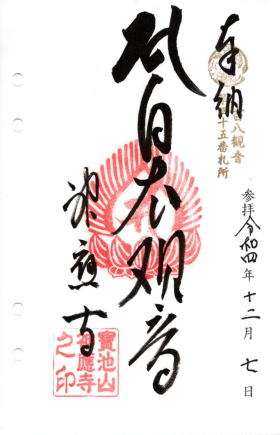 奉納
八観音
十五番札所
参拝令和四年十二月七日
白衣観音
應寺
寶池山
應寺
之印